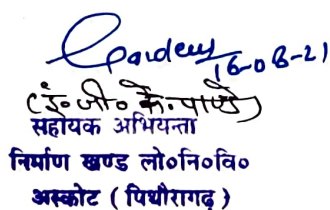 Pandey
16-08-21
(इं०जी० के० पाण्डे)
सहायक अभियन्ता
निर्माण खण्ड लो०नि०वि०
अस्कोट ( पिथौरागढ़ )